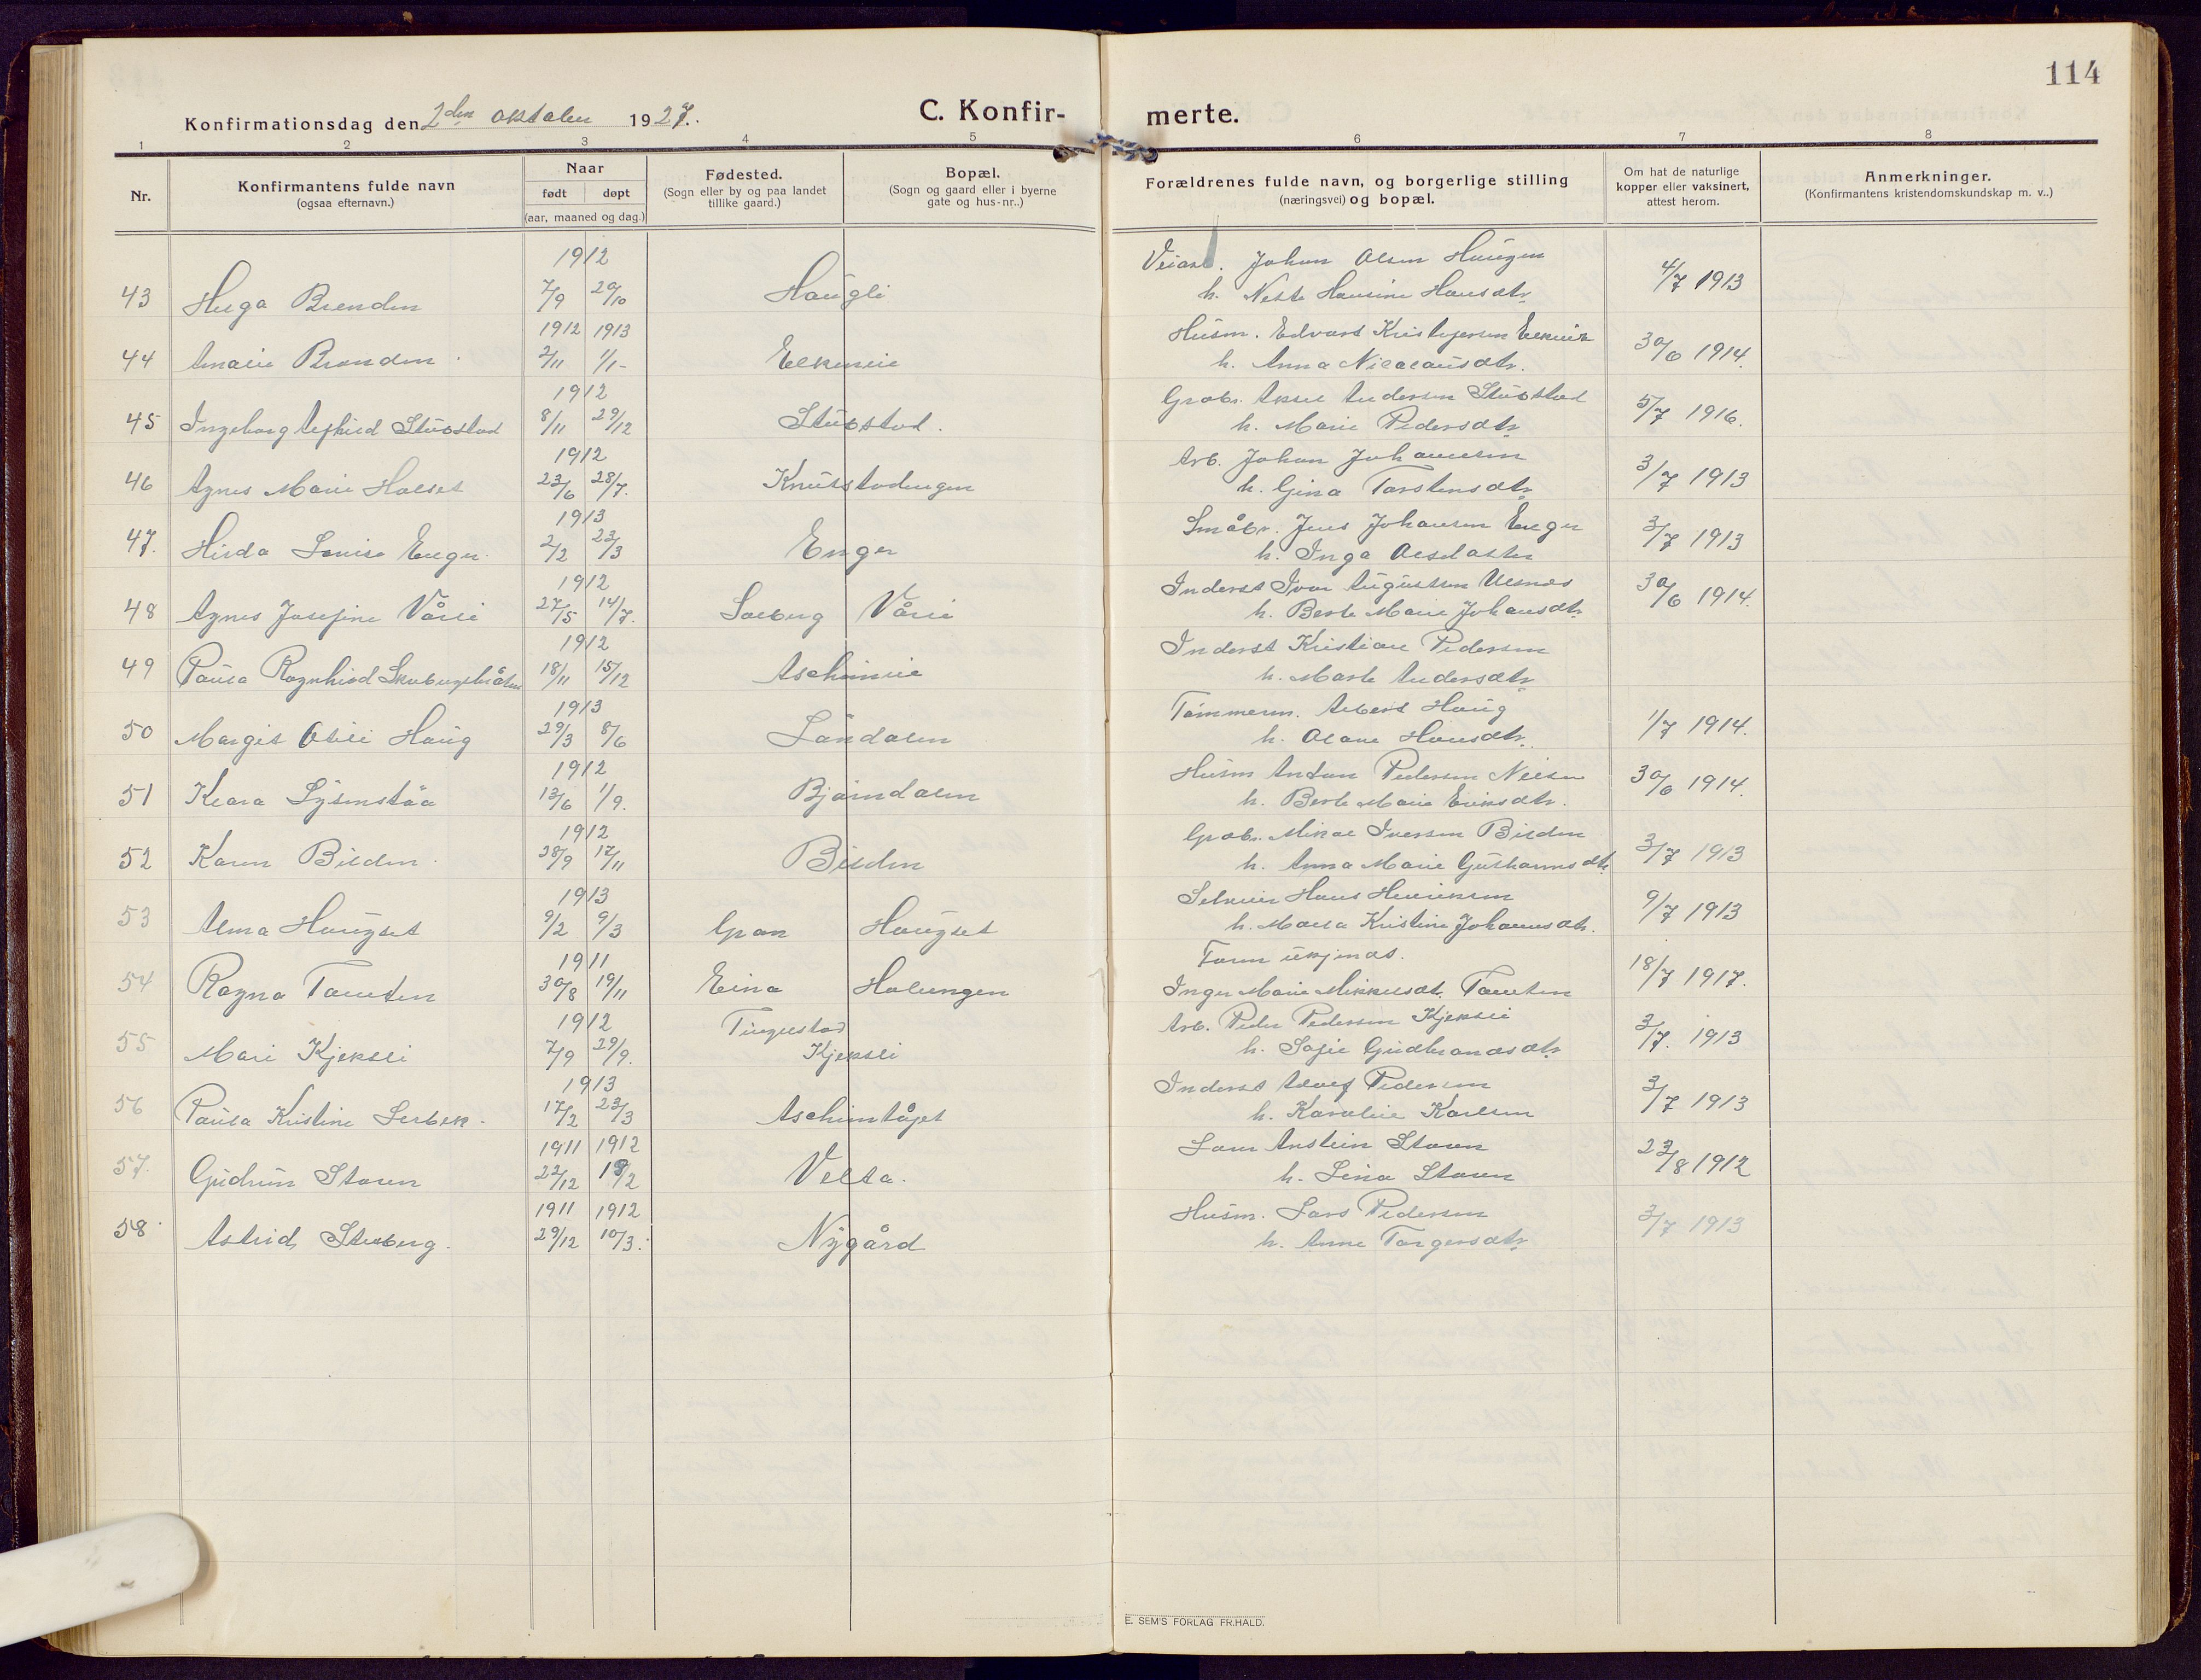 114
Konfirmationsdag den 2den oktober 1927.
C. Konfir-
merte.
1 2 3 4 5 6 7 8
Nr.
Konfirmantens fulde navn
(ogsaa efternavn.)
Naar
født døpt
(aar, maaned og dag.)
Fødested.
(Sogn eller by og paa landet
tillike gaard.)
Bopæl.
(Sogn og gaard eller i byerne
gate og hus-nr..)
Forældrenes fulde navn, og borgerlige stilling
(næringsvei) og bopæl.
Om hat de naturlige
kopper eller vaksinert,
attest herom.
Anmerkninger.
(Konfirmantens kristendomskundskap m. v..)
1912 Veiarb. Johan Olsen Haugen
43 Helga Brenden 7/9 20/10 Haugli h. Hansine Hansdtr. 4/7 1913
1912 1913 Husm. Edvard Kristofersen
44 Amalie Brenden 2/11 1/1- h. Anna Nicolausdtr. 30/6 1914.
1912 Grdbr. Aksel Andersen Stubstad
45 Ingeborg Alfhild Stubstad 8/11 29/12 Stubstad. h. Marie Pedersdtr. 5/7 1916.
1912 Arb. Johan Johannesen
46 Agnes Marie Holset 23/6 28/7. Knutstadengen h. Gina Torstensdtr. 3/7 1913
1913 Småbr. Jens Johansen Enger
47. Hilda Lovise Enger. 2/2 23/3 Enger h. Inga Olsdatter 3/7 1913
1912 Inderst Ivar Augustsen Ulsnes
48 Agnes Josefine Vårli 27/5 14/7. Solberg Vårli h. Berte Marie Johansdtr. 30/6 1914.
1912 Inderst Kristian Pedersen
49 Paula Ragnhild 18/11 15/12 Aschimlie h. Marte Andersdtr.
1913 Tømmerm. Albert Haug
50 Margit Otili Haug 29/3 8/6 Landalen h. Olave Hansdtr. 1/7 1914.
1912 Husm Anton Pedersen Nilsen
51 Klara 13/6 1/9. Bjørndalen h. Berte Marie Eriksdtr. 30/6 1914.
1912 Grdbr. Mikal Iversen Bilden
52 Karen Bilden. 28/9 17/11 Bilden h. Anna Marie Gulhannsdtr. 3/7 1913
1913 Selveier Hans Henriksen
53 Alma Haugset 9/2 9/3 Gran Haugset h. Malla Kristine Johannsdtr. 9/7 1913
1911 Foren ukjendt.
54 Ragna Tomten 30/8 19/11 Eina Holungen Inger Marie Mikkelsdt. Tomten 18/7 1917.
1912 Tingelstad Arb. Peder Pedersen Kjeksli
55 Mari Kjeksli 7/9 29/9. Kjeksli h. Sofie Gudbrandsdtr. 3/7. 1913
1913 Inderst Adolf Pedersen
56 Paula Kristine Lerbek. 17/2 23/3 Aschimtajet h. Karoline Karlsen 3/7 1913
1911 1912 Anstein Støen
57. Gudrun Støen 22/12 18/2 Velta. h. Lina Støen 23/8 1912
1911 1912 Husm. Lars Pedersen
58 Astrid Stuberg. 29/12 10/3. Nygård h. Anne Torgersdtr. 3/7 1913
E. SEM'S FORLAG FR.HALD.